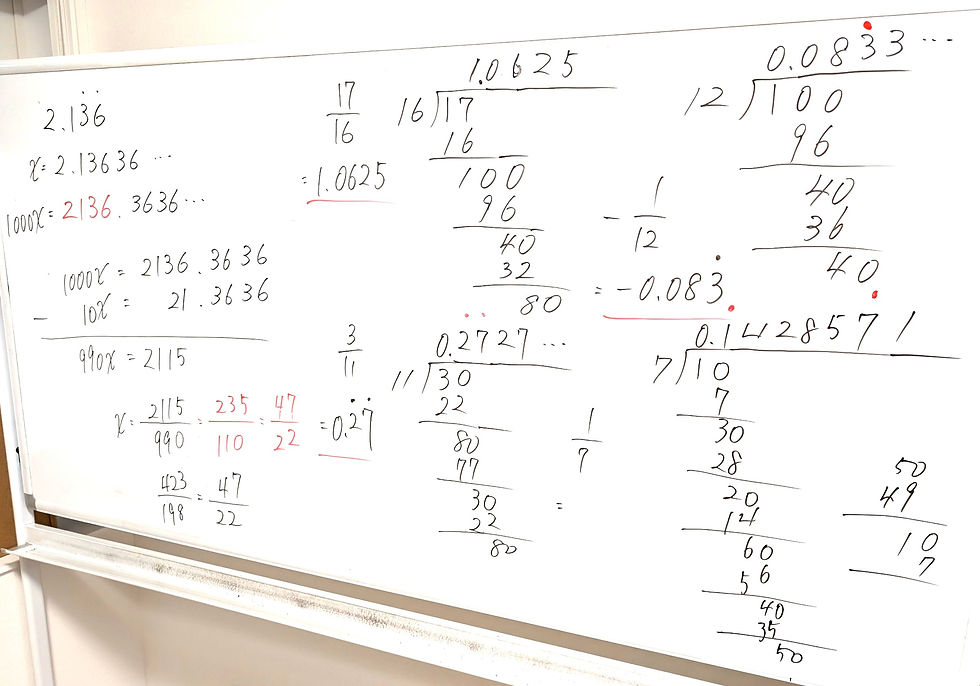 2.13̇6̇
x = 2.13636 …
1000x = 2136.3636…
1000x = 2136.3636
− 10x = 21.3636
990x = 2115
x = 2115/990 = 235/110 = 47/22
423/198 = 47/22
17/16
= 1.0625
1.0625
16)17
16
100
96
40
32
80
3/11
= 0.2̇7̇
0.2̇7̇27…
11)30
22
80
77
30
22
80
− 1/12
= −0.083̇
0.083̇3…
12)100
96
40
36
40
1/7
=
0.1̇42857̇1
7)10
7
30
28
20
14
60
56
40
35
50
50
49
10
7